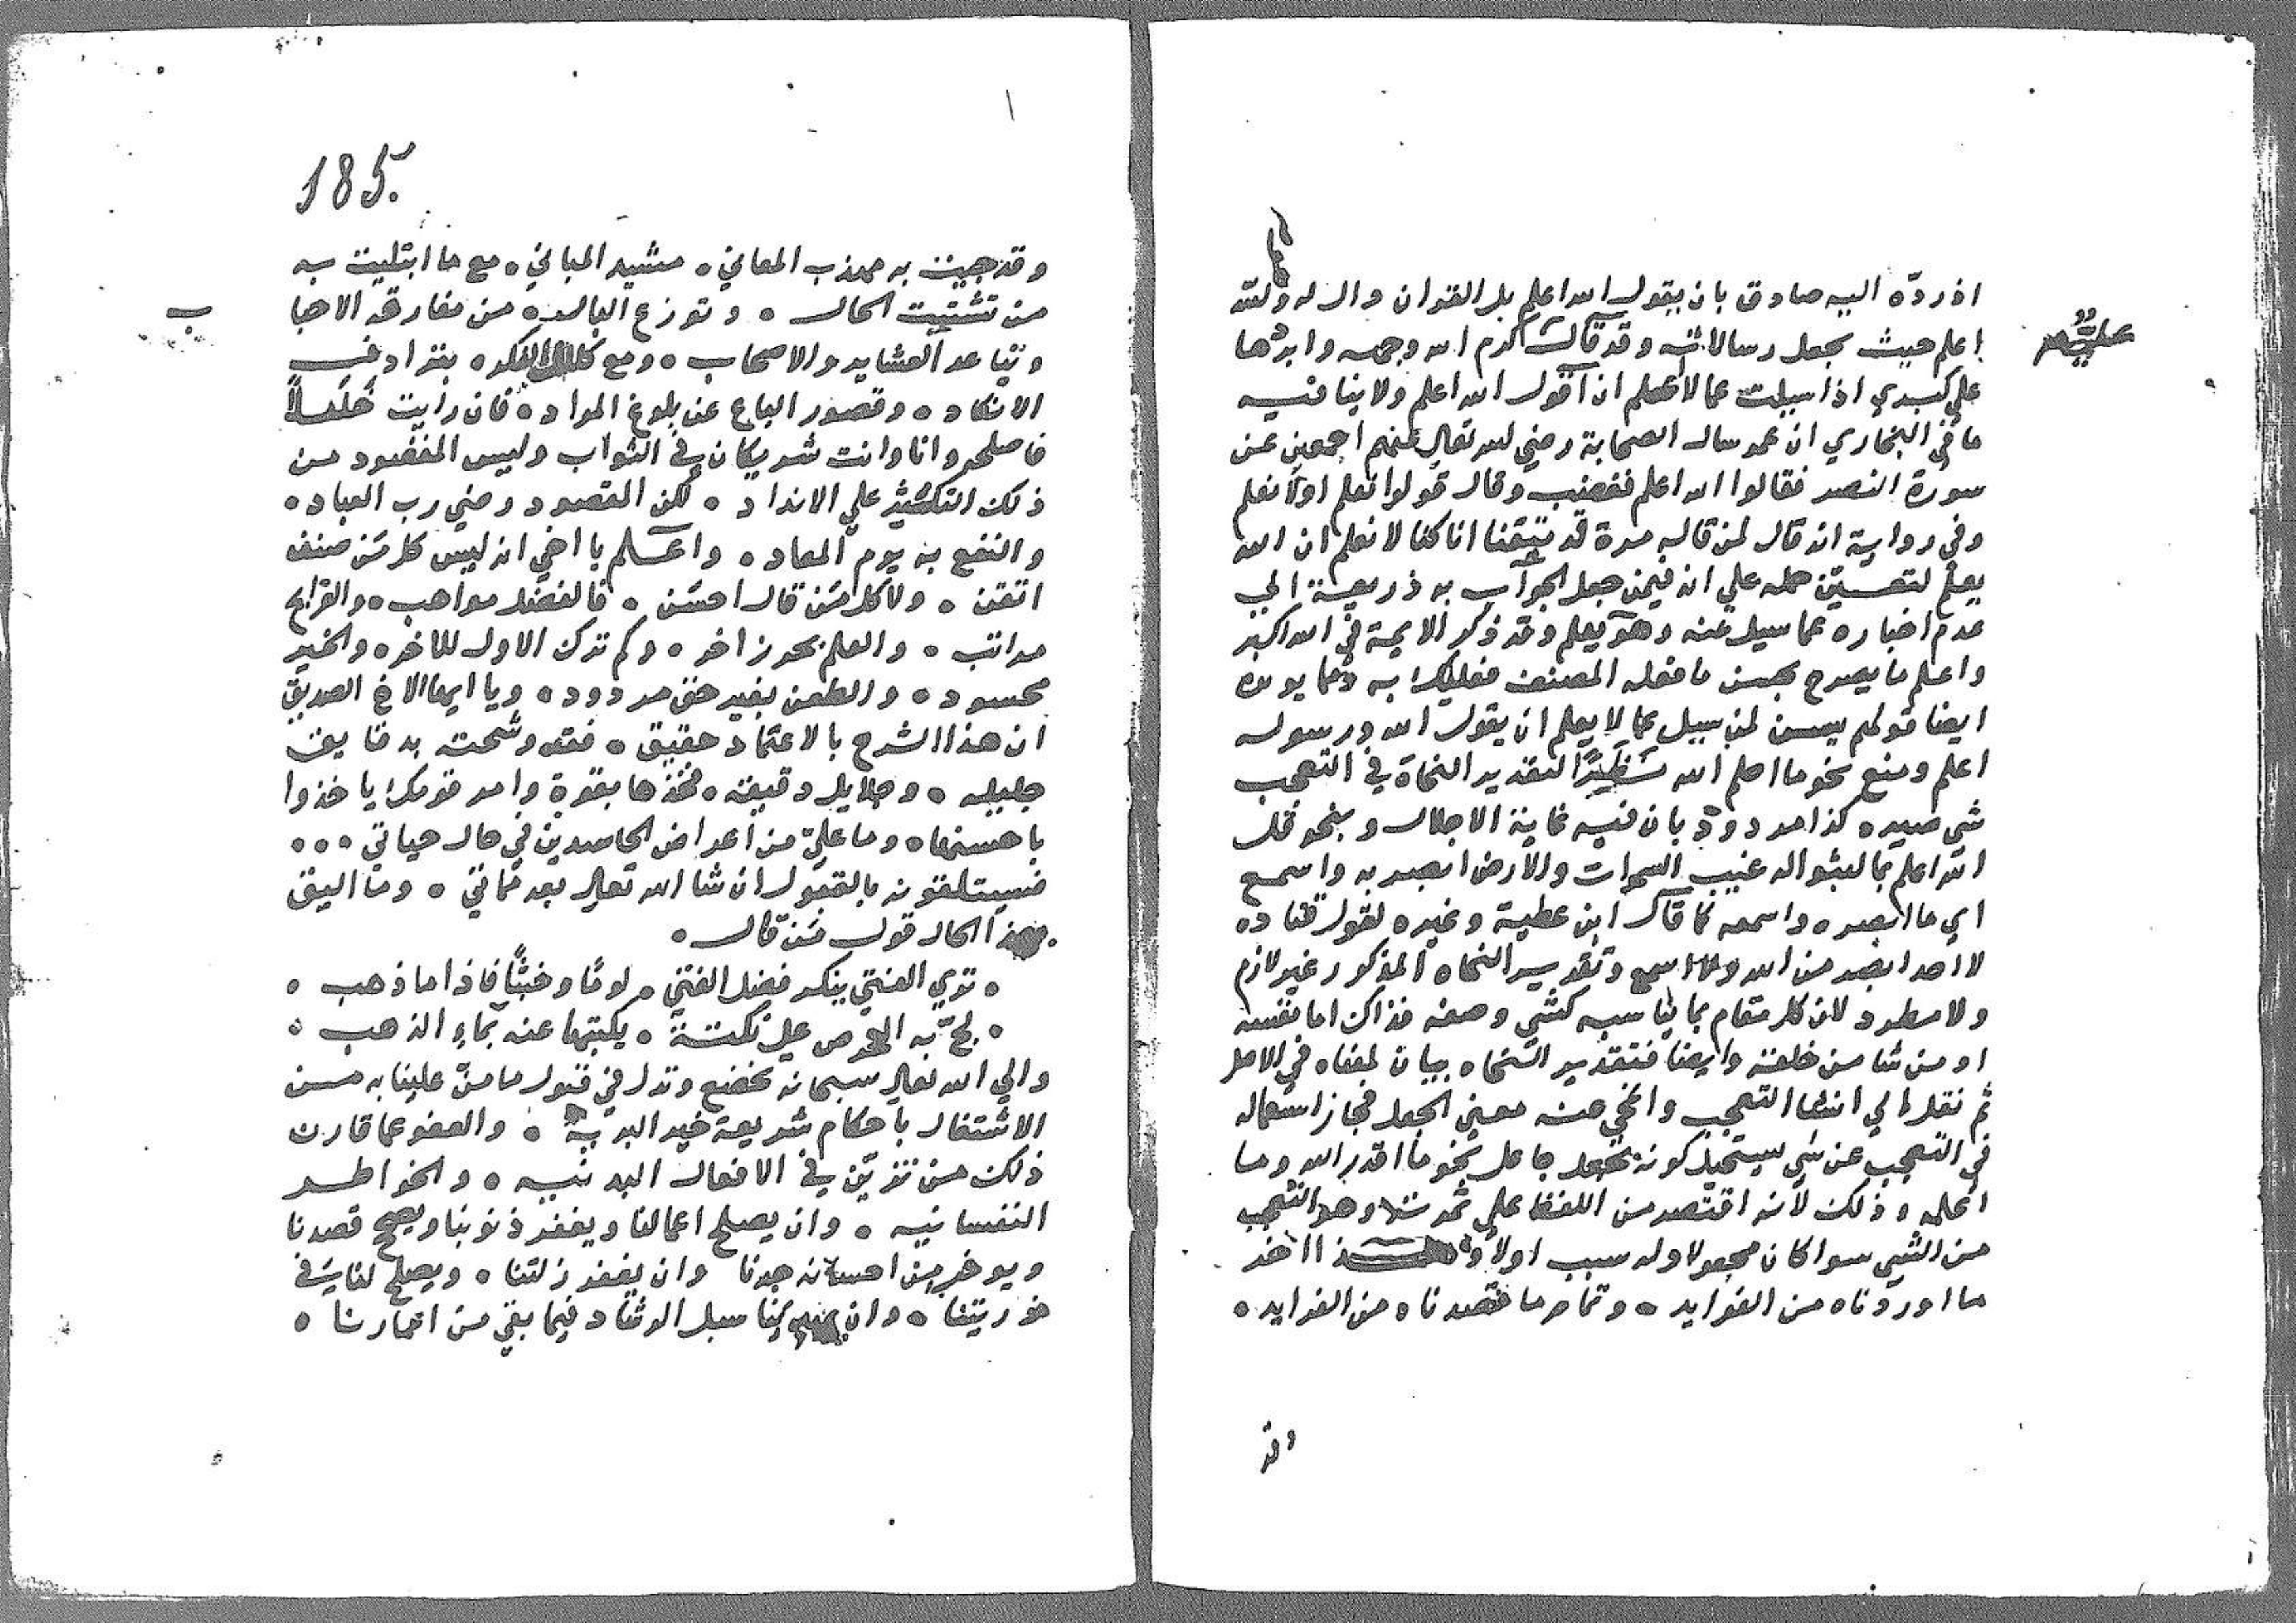 اذ ردّه اليه صادق بان يقول الله اعلم بل القران دال له ولله
اعلم حيث يجعل رسالاته وقد قال كرم الله وجهه وابردها
على كبدي اذا سيلت عما لا اعلم ان اقول الله اعلم ولا ينافيه
ما في البخاري ان عمر سال الصحابة رضي الله تعالى عنهم اجمعين عن
سورة النصر فقالوا الله اعلم فغضب وقال قولوا نعلم اولا نعلم
وفي رواية انه قال لمن قاله مرة قد تيقنا انا كنا لا نعلم ان الله
يعلم لتعين حمله على انه فيمن جعل الجواب به ذريعة الى
عدم اخباره عما سيل عنه وهو يعلم وقد ذكر الايمة في الله اكبر
واعلم ما يصرح بحسن ما فعله المصنف فعليك به ومما يويده
ايضا قولهم يسن لمن سيل عما لا يعلم ان يقول الله ورسوله
اعلم ومنع نحو ما احلم الله نظرًا لتقدير النحاة في التعجب
شي صيره كذا مردود بان فيه غاية الاجلال وبنحو قل
الله اعلم بما لبثوا له غيب السموات والارض ابصر به واسمع
اي ما ابصره واسمعه كما قال ابن عطية وغيره لقول قتاده
لا احد ابصر من الله ولا اسمع وتقدير النحاه المذكور غير لازم
ولا مطرد لان كل مقام بما يناسبه كشي وصفه فذاك اما نفسه
او من شا من خلقه وايضا فتقدير النحاه بيان لمعناه في الاصل
ثم نقل الى انشا التعجب وانمحى عنه معنى الجعل فجاز استعماله
في التعجب عن شي يستحيل كونه بجعل جاعل نحو ما اقدر الله وما
اعلمه وذلك لانه اقتصر من اللفظ على ثمرته وهو التعجب
من الشي سوا كان مجعولا وله سبب اولا وهذا اخر
ما اوردناه من الفوايد ٥ وتمام ما قصدناه من الفرايد ٥
وقد
185.
وقد جيت به مهذب المعاني ٥ مشيد المباني ٥ مع ما ابتليت به
من تشتيت الحال ٥ وتوزع البال ٥ من مفارقة الاحبا
ب
وتباعد العشاير والاصحاب ٥ ومع كلال الفكر ٥ بترادف
الانكاد ٥ وقصور الباع عن بلوغ المراد ٥ فان رايت خَلَلاً
فاصلحه وانا وانت شريكان في الثواب وليس المقصود من
ذلك التكثير على الانداد ٥ لكن المقصود رضي رب العباد ٥
والنفع به يوم المعاد ٥ واعلم يا اخي انه ليس كل من صنف
اتقن ٥ ولا كل من قال احسن ٥ فالفضل مواهب ٥ والقرايح
مراتب ٥ والعلم بحور زاخر ٥ وكم ترك الاول للاخر ٥ والخير
محسود ٥ والطعن بغير حق مردود ٥ ويا ايها الاخ الصديق
ان هذا الشرح بالاعتماد حقيق ٥ فقد وشحته بدقايق
جليله ٥ وجلايل دقيقه ٥ فخذها بقوة وامر قومك ياخذوا
باحسنها ٥ وما عليّ من اعراض الحاسدين في حال حياتي ٥٥٥
فسيتلقونه بالقبول ان شا الله تعالى بعد مماتي ٥ وما اليق
بهذا الحال قول من قال ٥
٥ ترى الفتى ينكر فضل الفتى ٥ لومًا وخبثًا فاذا ما ذهب ٥
٥ لجّ به الحرص على نكتة ٥ يكتبها عنه بماء الذهب ٥
والى الله تعالى سبحانه نخضع وتذلل في قبول ما منّ علينا به من
الاشتغال باحكام شريعة خير البريه ٥ والعفو عما قارن
ذلك من تزيّن في الافعال البدنيه ٥ والخواطر
النفسانيه ٥ وان يصلح اعمالنا ويغفر ذنوبنا ويصح قصدنا
ويوفر من احسانه جدنا وان يغفر زلتنا ٥ ويصلح لنا في
ذريتنا ٥ وان بنا سبل الرشاد فيما بقي من اعمارنا ٥